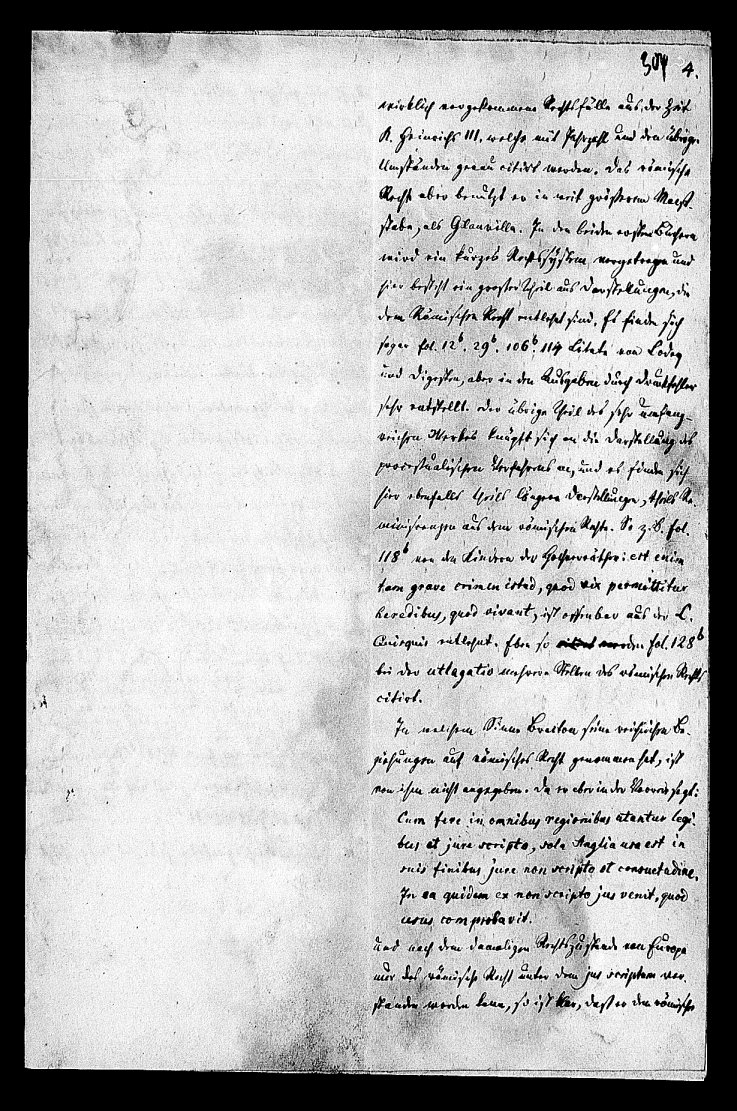 304 4.
wirklich vorgekommene Rechtsfälle aus der Zeit
K. Heinrichs III, welche mit Jahrzahl und den übrigen
Umständen genau citirt werden. Das römische
Recht aber benutzt er in weit größerem Maaß-
stabe, als Glanvilla. In den beiden ersten Büchern
wird ein kurzes Rechtssystem vorgetragen und
hier besteht ein großer Theil aus Darstellungen, die
dem Römischen Recht entlehnt sind. Es finden sich
sogar fol. 12b. 29b. 106b. 114 Citate von Codex
und Digesten, aber in den Ausgaben durch Druckfehler
sehr entstellt. Der übrige Theil des sehr umfang-
reichen Werkes knüpft sich an die Darstellung des
processualischen Verfahrens an, und es finden sich
hier ebenfalls theils längere Darstellungen, theils Re-
miniscenzen aus dem römischen Rechte. So z. B. fol.
118b von den Kindern der Hochverräther: est enim
tam grave crimen istud, quod vix permittitur
heredibus, quod vivant, ist offenbar aus der C.
Quisquis entlehnt. Eben so werden fol. 128b
bei der utlagatio mehrere Stellen des römischen Rechts
citirt.
In welchem Sinne Bracton seine reichlichen Be-
ziehungen auf römisches Recht genommen hat, ist
von ihm nicht angegeben. Da er aber in der Vorrede sagt:
Cum fere in omnibus regionibus utantur legi-
bus et jure scripto, sola Anglia usa est in
suis finibus jure non scripto et consuetudine.
In ea quidem ex non scripto jus venit, quod
usus comprobavit.
und nach dem damaligen Rechtszustande von Europa
nur das römische Recht unter dem jus scriptum ver-
standen werden kann, so ist klar, daß er dem römische